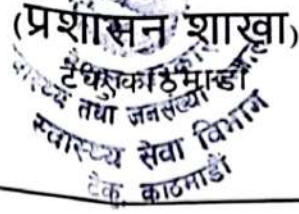 (प्रशासन शाखा)
टेकु, काठमाडौं
तथा जनसंख्या
स्वास्थ्य सेवा विभाग
टेकु, काठमाडौं